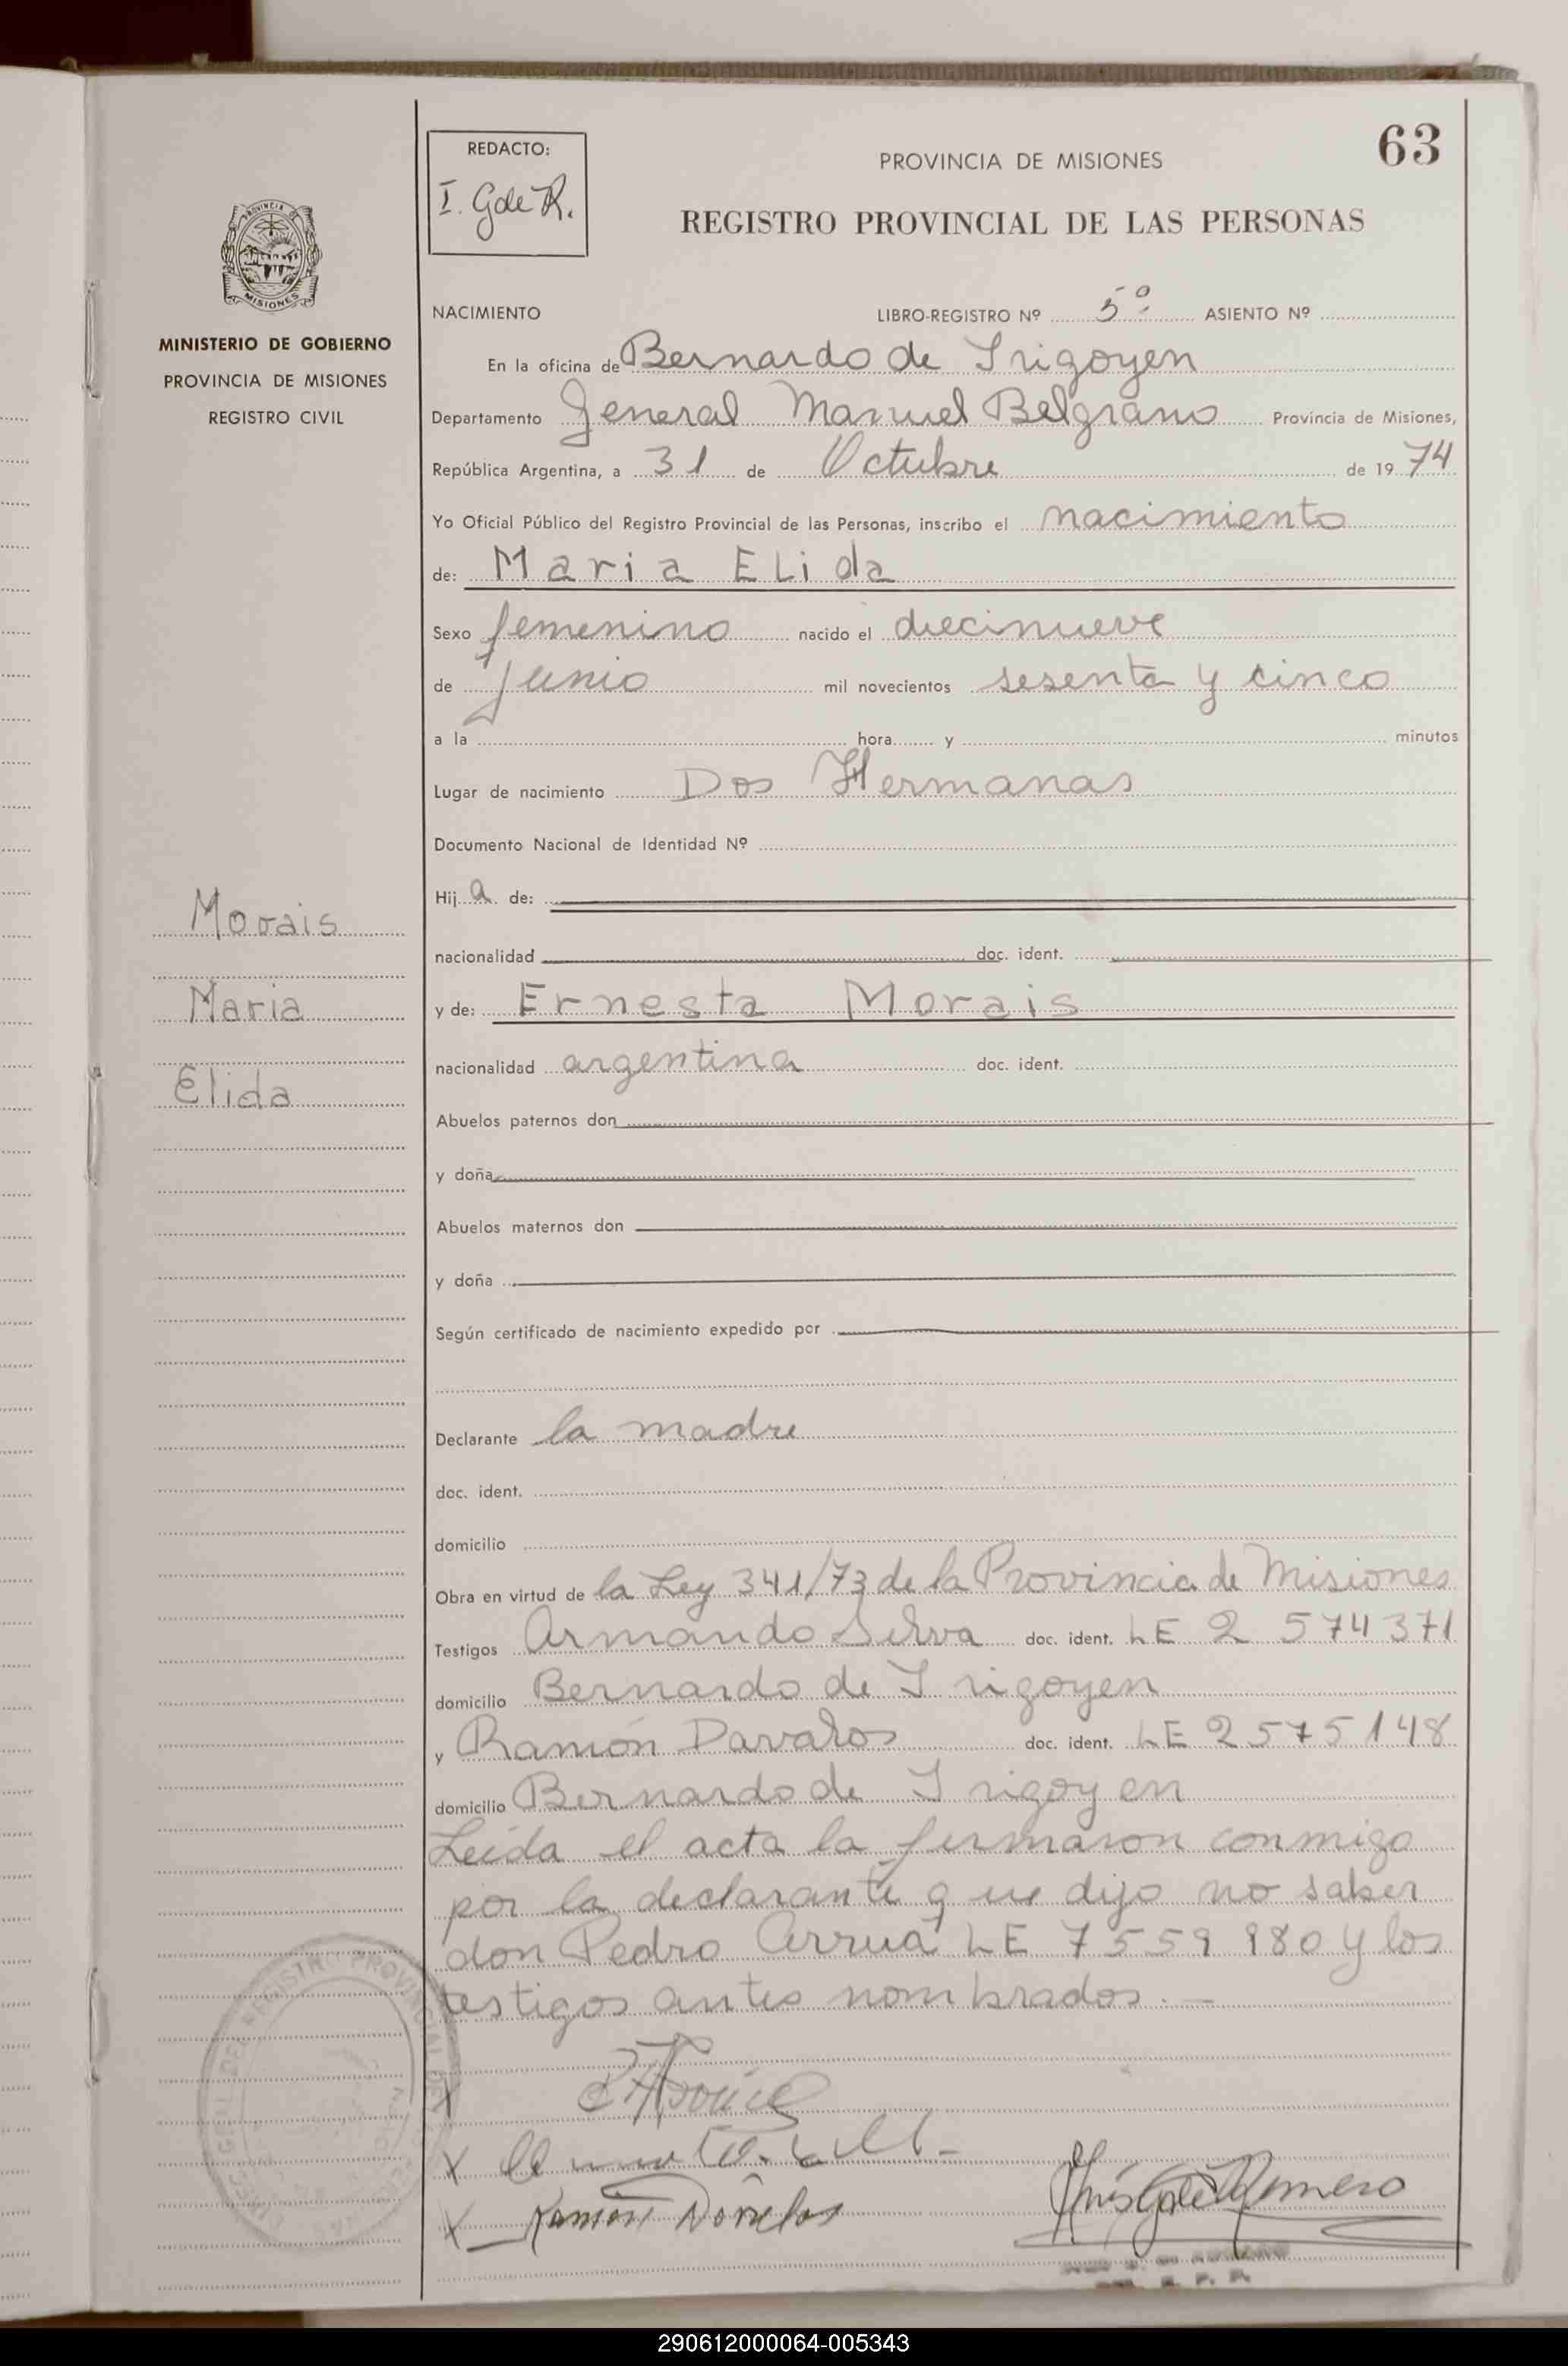 63
REDACTO:
I. G de R.
PROVINCIA DE MISIONES
REGISTRO PROVINCIAL DE LAS PERSONAS
PROVINCIA DE
MISIONES
MINISTERIO DE GOBIERNO
PROVINCIA DE MISIONES
REGISTRO CIVIL
Morais
Maria
Elida
NACIMIENTO LIBRO-REGISTRO Nº 5º ASIENTO Nº
En la oficina de Bernardo de Irigoyen
Departamento General Manuel Belgrano Provincia de Misiones,
República Argentina, a 31 de Octubre de 1974
Yo Oficial Público del Registro Provincial de las Personas, inscribo el nacimiento
de: Maria ELida
Sexo femenino nacido el diecinueve
de Junio mil novecientos sesenta y cinco
a la hora y minutos
Lugar de nacimiento Dos Hermanas
Documento Nacional de Identidad Nº
Hija de:
nacionalidad doc. ident.
y de: Ernesta Morais
nacionalidad argentina doc. ident.
Abuelos paternos don
y doña
Abuelos maternos don
y doña
Según certificado de nacimiento expedido por
Declarante la madre
doc. ident.
domicilio
Obra en virtud de la Ley 341/73 de la Provincia de Misiones
Testigos Armando Silva doc. ident. LE 2 574371
domicilio Bernardo de Irigoyen
y Ramón Davalos doc. ident. LE 2575148
domicilio Bernardo de Irigoyen
Leida el acta la firmaron conmigo
por la declarante que dijo no saber
don Pedro Arrua LE 7559980 y los
testigos antes nombrados. —
X
X
X Ramón Davalos
REGISTRO PROVINCIAL DE
290612000064-005343